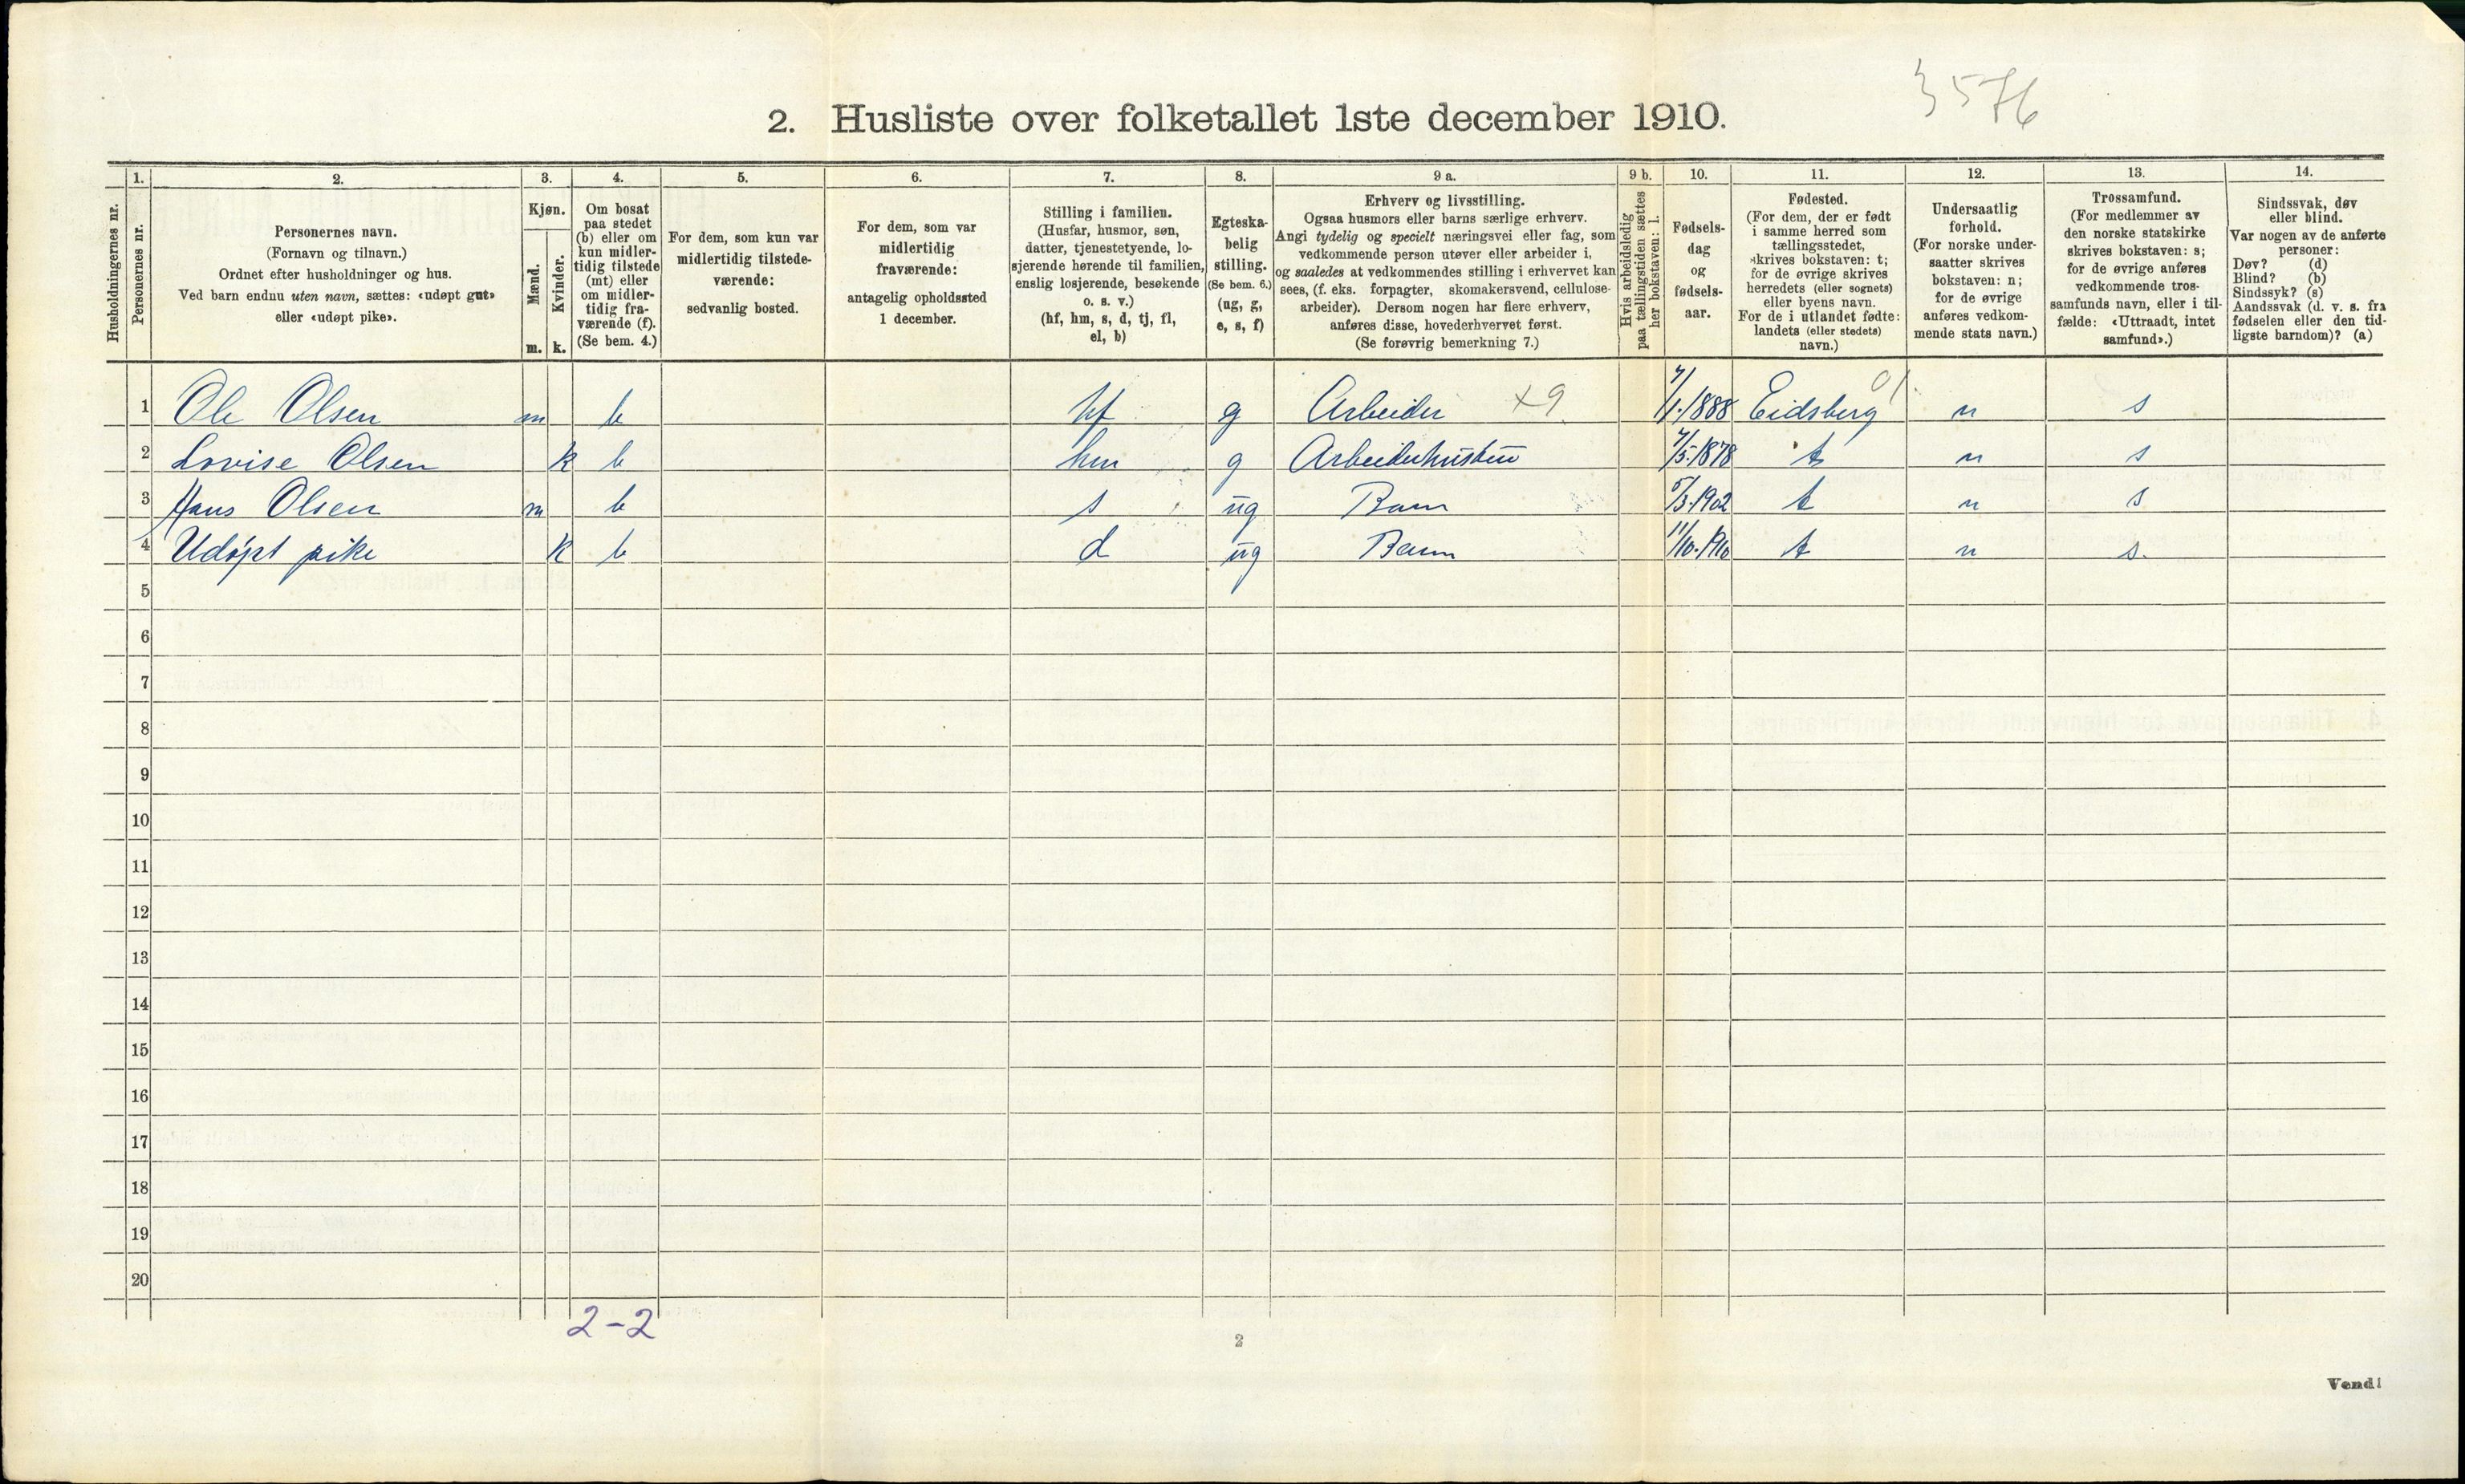 3576
2. Husliste over folketallet 1ste december 1910.
Husholdningernes nr.
1.
Personernes nr.
2.
Personernes navn.
(Fornavn og tilnavn.)
Ordnet efter husholdninger og hus.
Ved barn endnu uten navn, sættes: «udøpt gut»
eller «udøpt pike».
3.
Kjøn.
Mænd.
Kvinder.
m. k.
4.
Om bosat
paa stedet
(b) eller om
kun midler-
tidig tilstede
(mt) eller
om midler-
tidig fra-
værende (f).
(Se bem. 4.)
5.
For dem, som kun var
midlertidig tilstede-
værende:
sedvanlig bosted.
6.
For dem, som var
midlertidig
fraværende:
antagelig opholdssted
1 december.
7.
Stilling i familien.
(Husfar, husmor, søn,
datter, tjenestetyende, lo-
sjerende hørende til familien,
enslig losjerende, besøkende
o. s. v.)
(hf, hm, s, d, tj, fl,
el, b)
8.
Egteska-
belig
stilling.
(Se bem. 6.)
(ug, g,
e, s, f)
9 a.
Erhverv og livsstilling.
Ogsaa husmors eller barns særlige erhverv.
Angi tydelig og specielt næringsvei eller fag, som
vedkommende person utøver eller arbeider i,
og saaledes at vedkommendes stilling i erhvervet kan
sees, (f. eks. forpagter, skomakersvend, cellulose-
arbeider). Dersom nogen har flere erhverv,
anføres disse, hovederhvervet først.
(Se forøvrig bemerkning 7.)
9 b.
Hvis arbeidsledig
paa tællingstiden sættes
her bokstaven: l.
10.
Fødsels-
dag
og
fødsels-
aar.
11.
Fødested.
(For dem, der er født
i samme herred som
tællingsstedet,
skrives bokstaven: t;
for de øvrige skrives
herredets (eller sognets)
eller byens navn.
For de i utlandet fødte:
landets (eller stedets)
navn.)
12.
Undersaatlig
forhold.
(For norske under-
saatter skrives
bokstaven: n;
for de øvrige
anføres vedkom-
mende stats navn.)
13.
Trossamfund.
(For medlemmer av
den norske statskirke
skrives bokstaven: s;
for de øvrige anføres
vedkommende tros-
samfunds navn, eller i til-
fælde: «Uttraadt, intet
samfund».)
14.
Sindssvak, døv
eller blind.
Var nogen av de anførte
personer:
Døv? (d)
Blind? (b)
Sindssyk? (s)
Aandssvak (d. v. s. fra
fødselen eller den tid-
ligste barndom)? (a)
1 Ole Olsen m b hf g Arbeider x9 7/1.1888 Eidsberg 01 n s
2 Lovise Olsen k b hm g Arbeiderhustru 7/5.1878 t n s
3 Hans Olsen m b s ug Barn 5/3.1902 t n s
4 Udøpt pike k b d ug Barn 11/10.1910 t n s.
5
6
7
8
9
10
11
12
13
14
15
16
17
18
19
20
2-2
2
Vend!